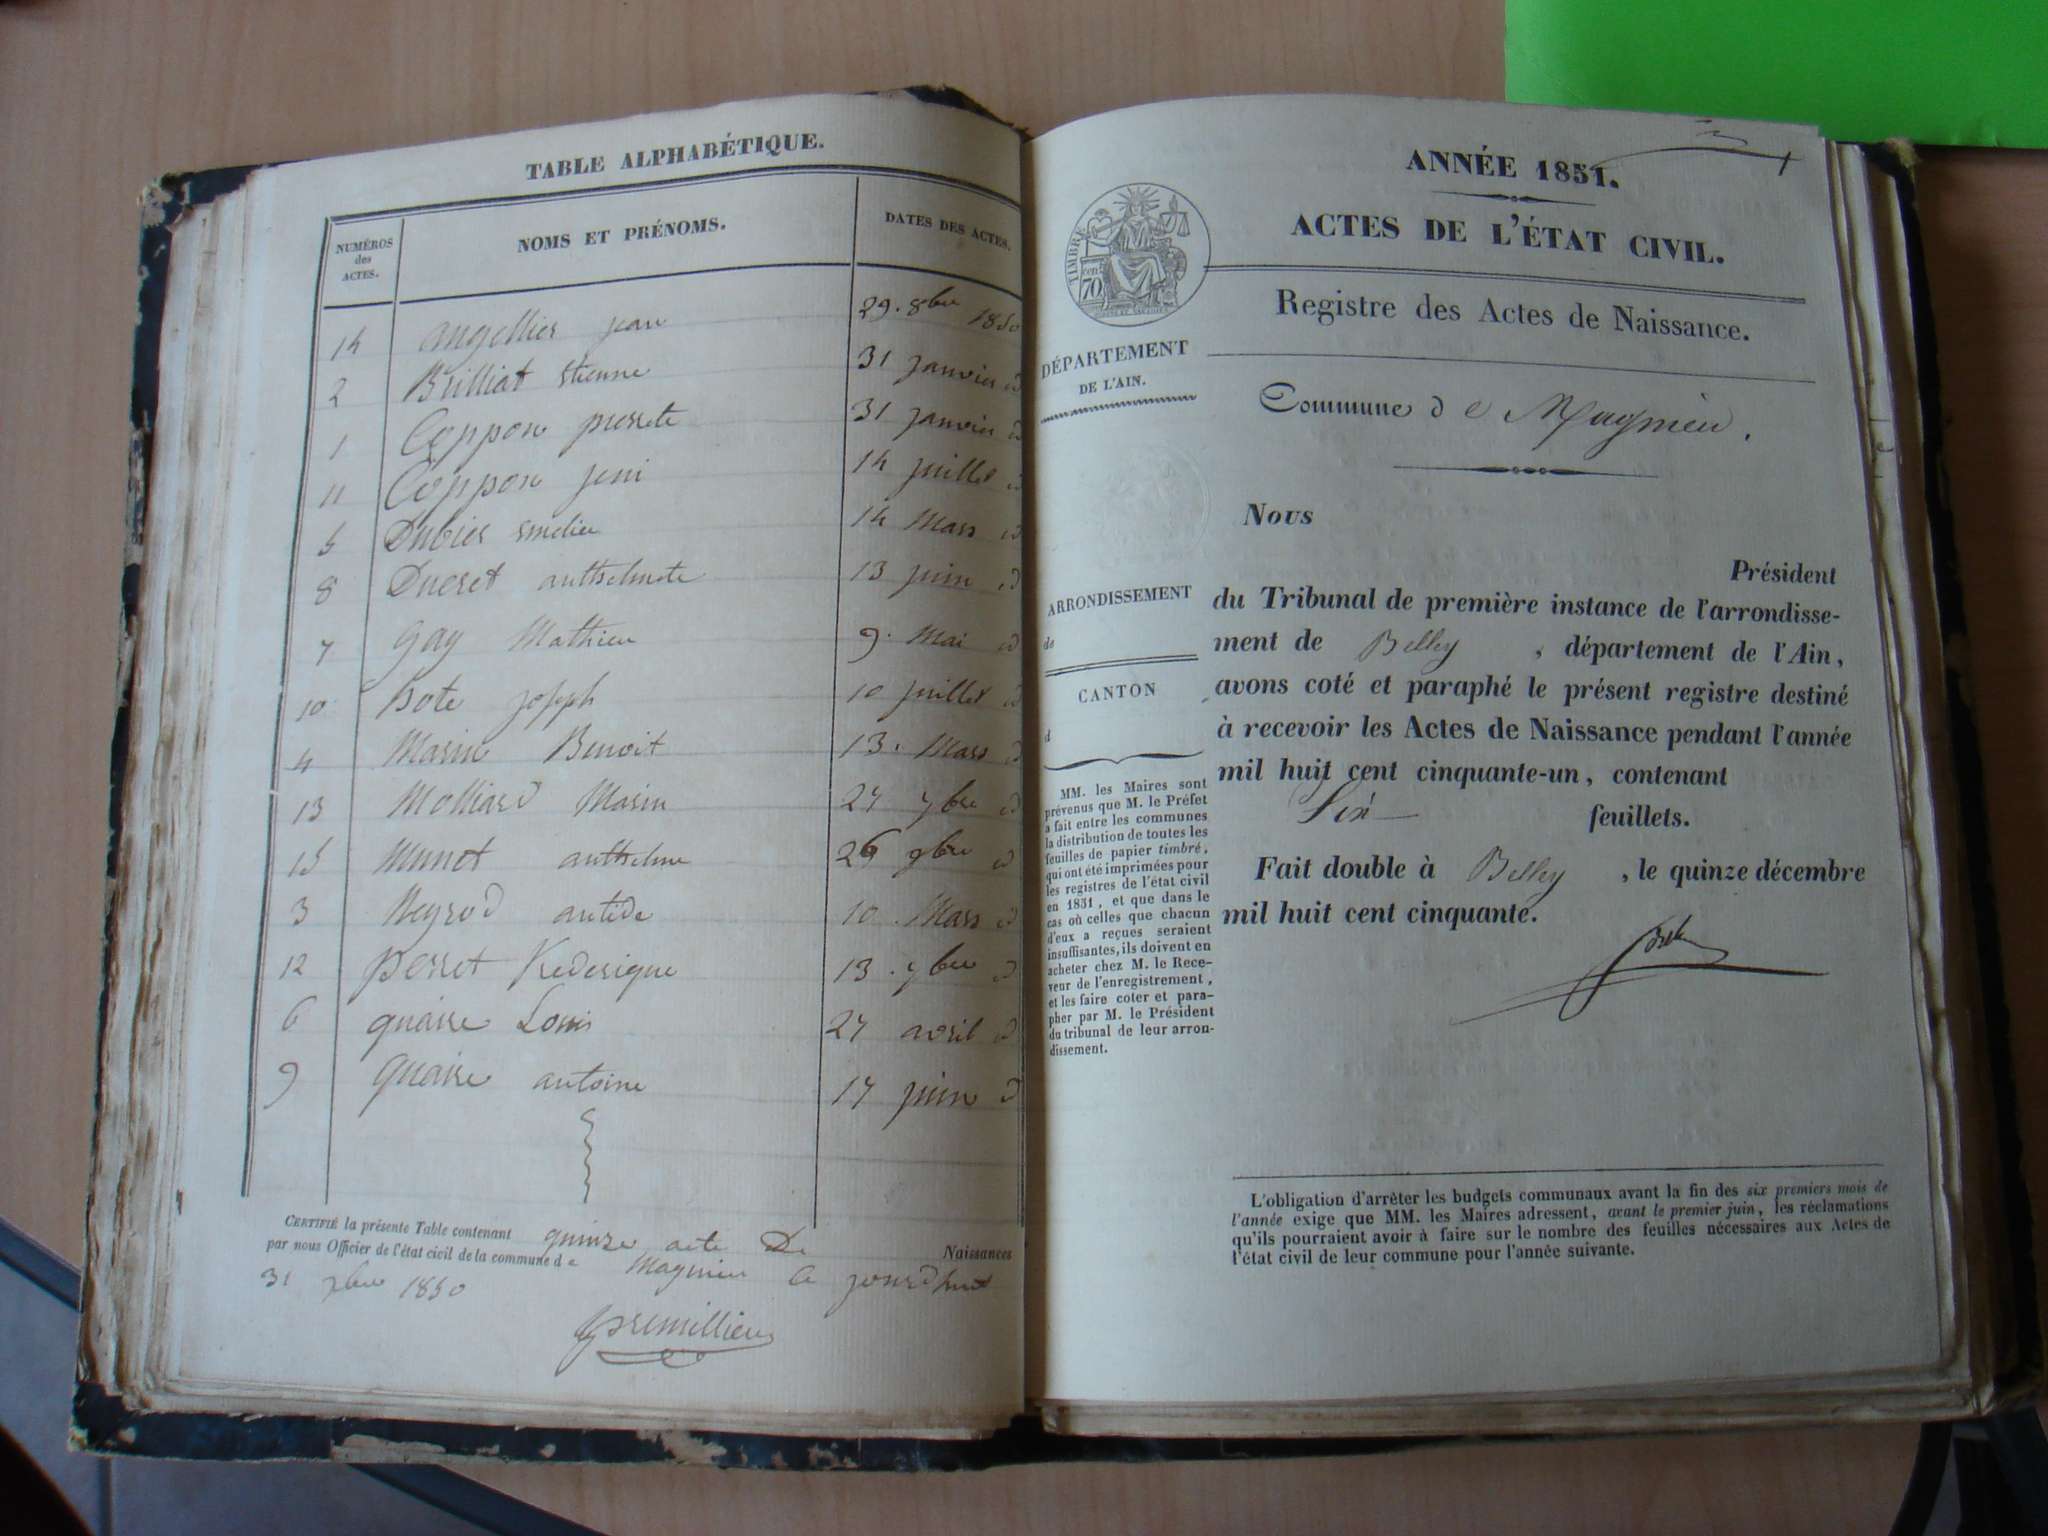 TABLE ALPHABÉTIQUE.
NUMÉROS des ACTES. NOMS ET PRÉNOMS. DATES DES ACTES.
14 angellier jean 29. 8bre 1850
2 Brilliat etienne 31 janvier id
1 Coppon pierrete 31 janvier id
11 Coppon jeni 14 juillet id
5 Dubier emelie 14 Mars id
8 Ducret anthelmete 13 juin id
7 gay Mathieu 9. Mai id
10 hote joseph 10 juillet id
4 Marin Benoit 13. Mars id
13 Molliard Marin 27 7bre id
15 Munet anthelme 26 9bre id
3 Neyrod antide 10. Mars id
12 perret frederique 13. 7bre id
6 quaire Louis 27 avril id
9 quaire antoine 17 juin id
CERTIFIÉ la présente Table contenant quinze acte De Naissances
par nous Officier de l'état civil de la commune de Magnieu Ce jourdhuit
31 xbre 1850
premillieu
1
ANNÉE 1851.
ACTES DE L'ÉTAT CIVIL.
Registre des Actes de Naissance.
TIMBRE
70 cen.
DÉPARTEMENT
DE L'AIN.
Commune de Magnieu.
Nous
Président
du Tribunal de première instance de l'arrondisse-
ment de Belley, département de l'Ain,
avons coté et paraphé le présent registre destiné
à recevoir les Actes de Naissance pendant l'année
mil huit cent cinquante-un, contenant
Six feuillets.
Fait double à Belley, le quinze décembre
mil huit cent cinquante.
ARRONDISSEMENT
de
CANTON
d
MM. les Maires sont
prévenus que M. le Préfet
a fait entre les communes
la distribution de toutes les
feuilles de papier timbré,
qui ont été imprimées pour
les registres de l'état civil
en 1851, et que dans le
cas où celles que chacun
d'eux a reçues seraient
insuffisantes, ils doivent en
acheter chez M. le Rece-
veur de l'enregistrement,
et les faire coter et para-
pher par M. le Président
du tribunal de leur arron-
dissement.
L'obligation d'arrêter les budgets communaux avant la fin des six premiers mois de
l'année exige que MM. les Maires adressent, avant le premier juin, les réclamations
qu'ils pourraient avoir à faire sur le nombre des feuilles nécessaires aux Actes de
l'état civil de leur commune pour l'année suivante.